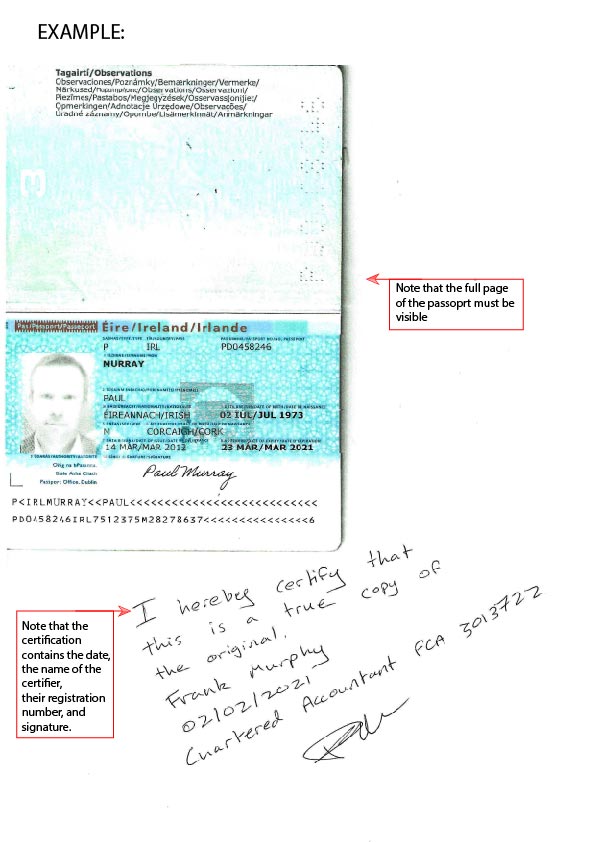 EXAMPLE:
Tagairtí/Observations
Observaciones/Poznámky/Bemærkninger/Vermerke/
Märkused/Observations/Osservazioni/
Piezīmes/Pastabos/Megjegyzések/Osservassjonijiet/
Opmerkingen/Adnotacje Urzędowe/Observações/
Úradné záznamy/Opombe/Lisämerkinnät/Anmärkningar
3
Note that the full page
of the passoprt must be
visible
Pas/Passport/Passeport Éire/Ireland/Irlande
P IRL PD0458246
MURRAY
PAUL
ÉIREANNACH/IRISH 02 IUL/JUL 1973
CORCAIGH/CORK
14 MAR/MAR 2012 23 MAR/MAR 2021
Oifig na bPasanna,
Baile Átha Cliath
Passport Office, Dublin
Paul Murray
P<IRLMURRAY<<PAUL<<<<<<<<<<<<<<<<<<<<<<<<<<
PD0458246IRL7512375M28278637<<<<<<<<<<<<<<<<6
Note that the
certification
contains the date,
the name of the
certifier,
their registration
number, and
signature.
I herebey certify that
this is a true copy of
the original.
Frank Murphy
02/02/2021
Chartered Accountant FCA 3013722